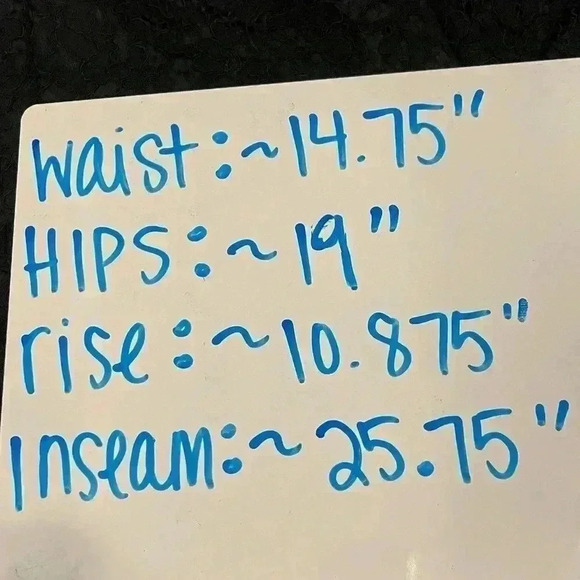 waist: ~14.75"
HIPS: ~19"
rise: ~10.875"
Inseam: ~25.75"